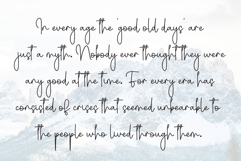 In every age the 'good old days' are
just a myth. Nobody ever thought they were
any good at the time. For every era has
consisted of crises that seemed unbearable to
the people who lived through them.